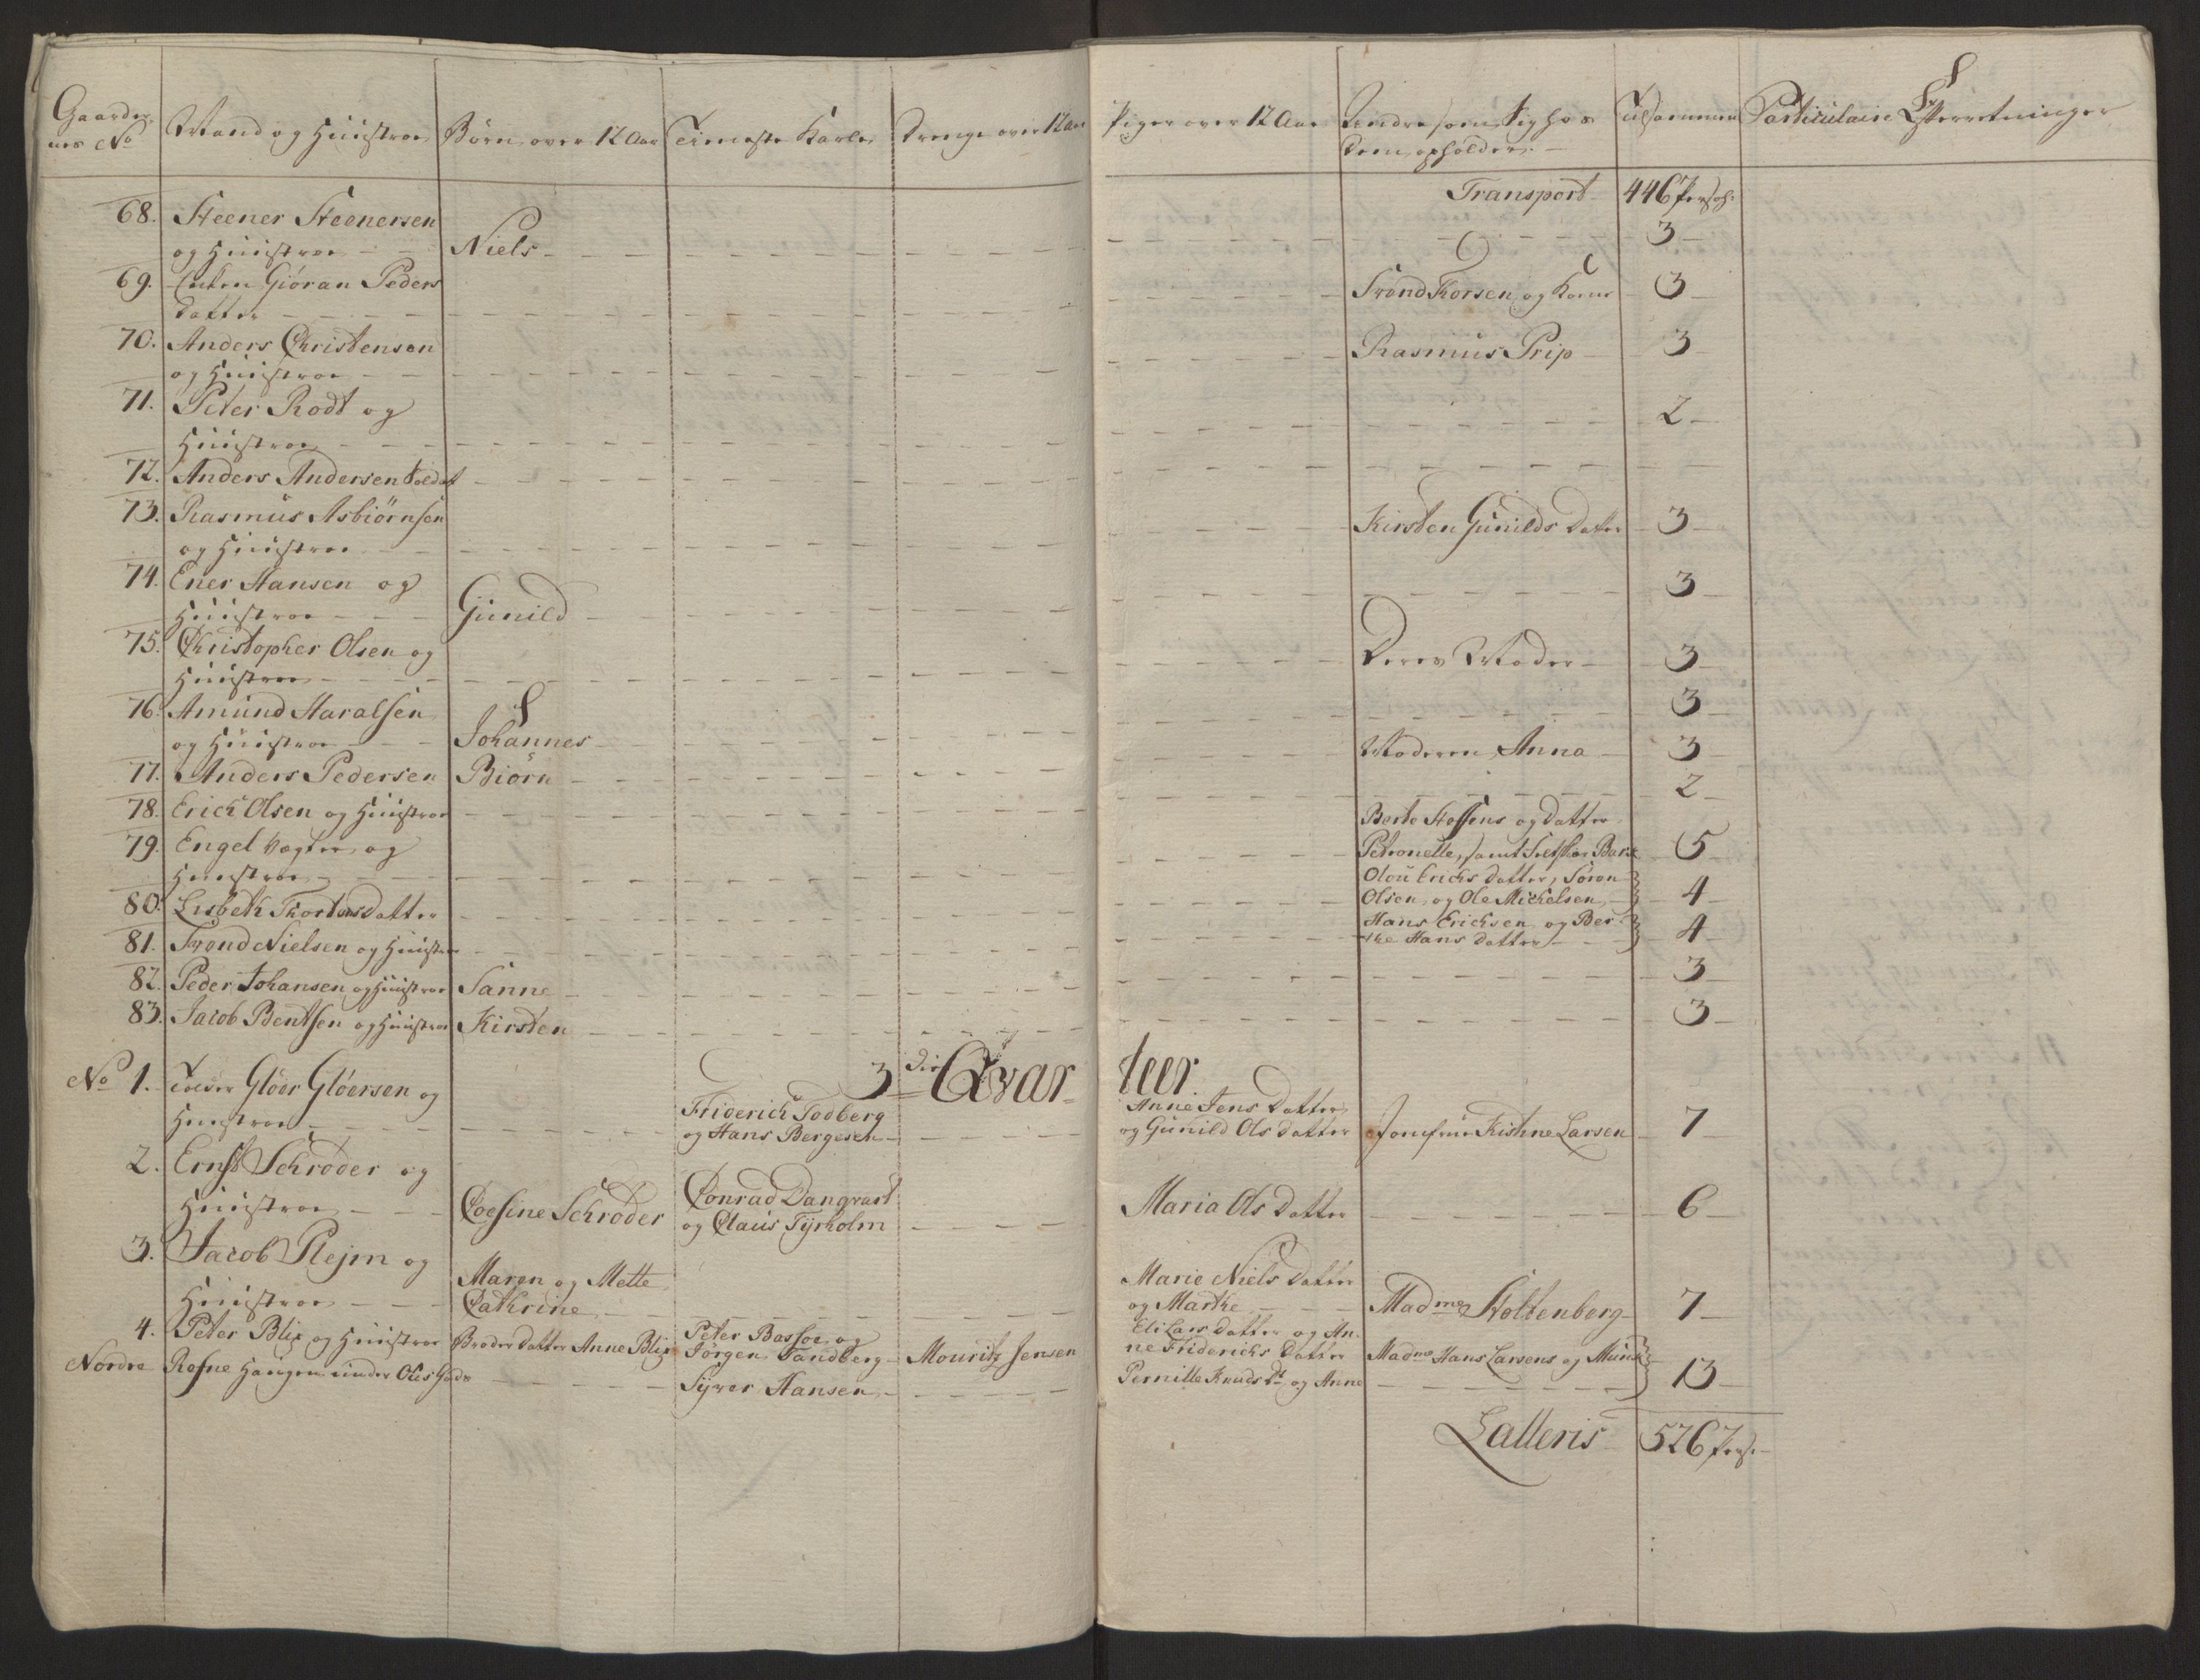 Gaarder-
nes No
Mand og Hustroe
Børn over 12 Aar
Tieneste Karle
Drenge over 12 Aar
Piger over 12 Aar
Andre som sig hos
dem opholder
Tilsammen
Particulaire Efterretninger
Transport 446 Persoh:
68. Steener Steenersen
og Hustroe Niels 3
69. Enken Giøran Peders
Datter Trond Thorsen og Kone 3
70. Anders Christensen
og Hustroe Rasmus Prip 3
71. Peter Rodt og
Hustroe 2
72. Anders Andersen Soldat
73. Rasmus Asbiørnsen
og Hustroe Kirsten Gunilds Datter 3
74. Ener Hansen og
Hustroe Gunild 3
75. Christopher Olsen og
Hustroe Deres Moder 3
76. Amund Haralsen
og Hustroe Johannes 3
77. Anders Pedersen Biörn Moderen Anna 3
78. Erich Olsen og Hustroe 2
79. Engel Vegter og
Hustroe
Berte Steffens og Datter
Petronelle, samt 5
80. Lisbeth Thortens datter
Olou Erichs datter, Søren
Olsen og Ole Michelsen 4
81. Trond Nielsen og Hustroe
Hans Erichsen og Ber-
the Hans datter 4
82. Peder Johansen og Hustroe Sanne 3
83. Jacob Bentsen og Hustroe Kirsten 3
3die Qvarteer
No 1. Tolder Glöer Glöersen og
Hustroe
Friderich Todberg
og Hans Bergesen
Anne Jens Datter
og Gunild Ols datter Jomfrue Kistine Larsen 7
2. Ernst Schrøder og
Hustroe Coesine Schrøder
Conrad Dangvart
og Claus Tyrholm
Maria Ols Datter 6
3. Jacob Plejm og
Hustroe
Maren og Mette
Cathrine
Marie Niels Datter
og Marthe Madme Stoltenberg 7
4. Peter Blix og Hustroe Broder Datter Anne Blix
Peter Bassøe og
Jørgen Sandberg Mouritz Jensen
Eli Lars datter og An-
ne Friderichs Datter Madme Hans Larsens og Munk
Nordre Refne Haugen under Oles Gods
Syver Hansen
Pernille Knuds Dr og Anne 13
Latteris 526 Pers: